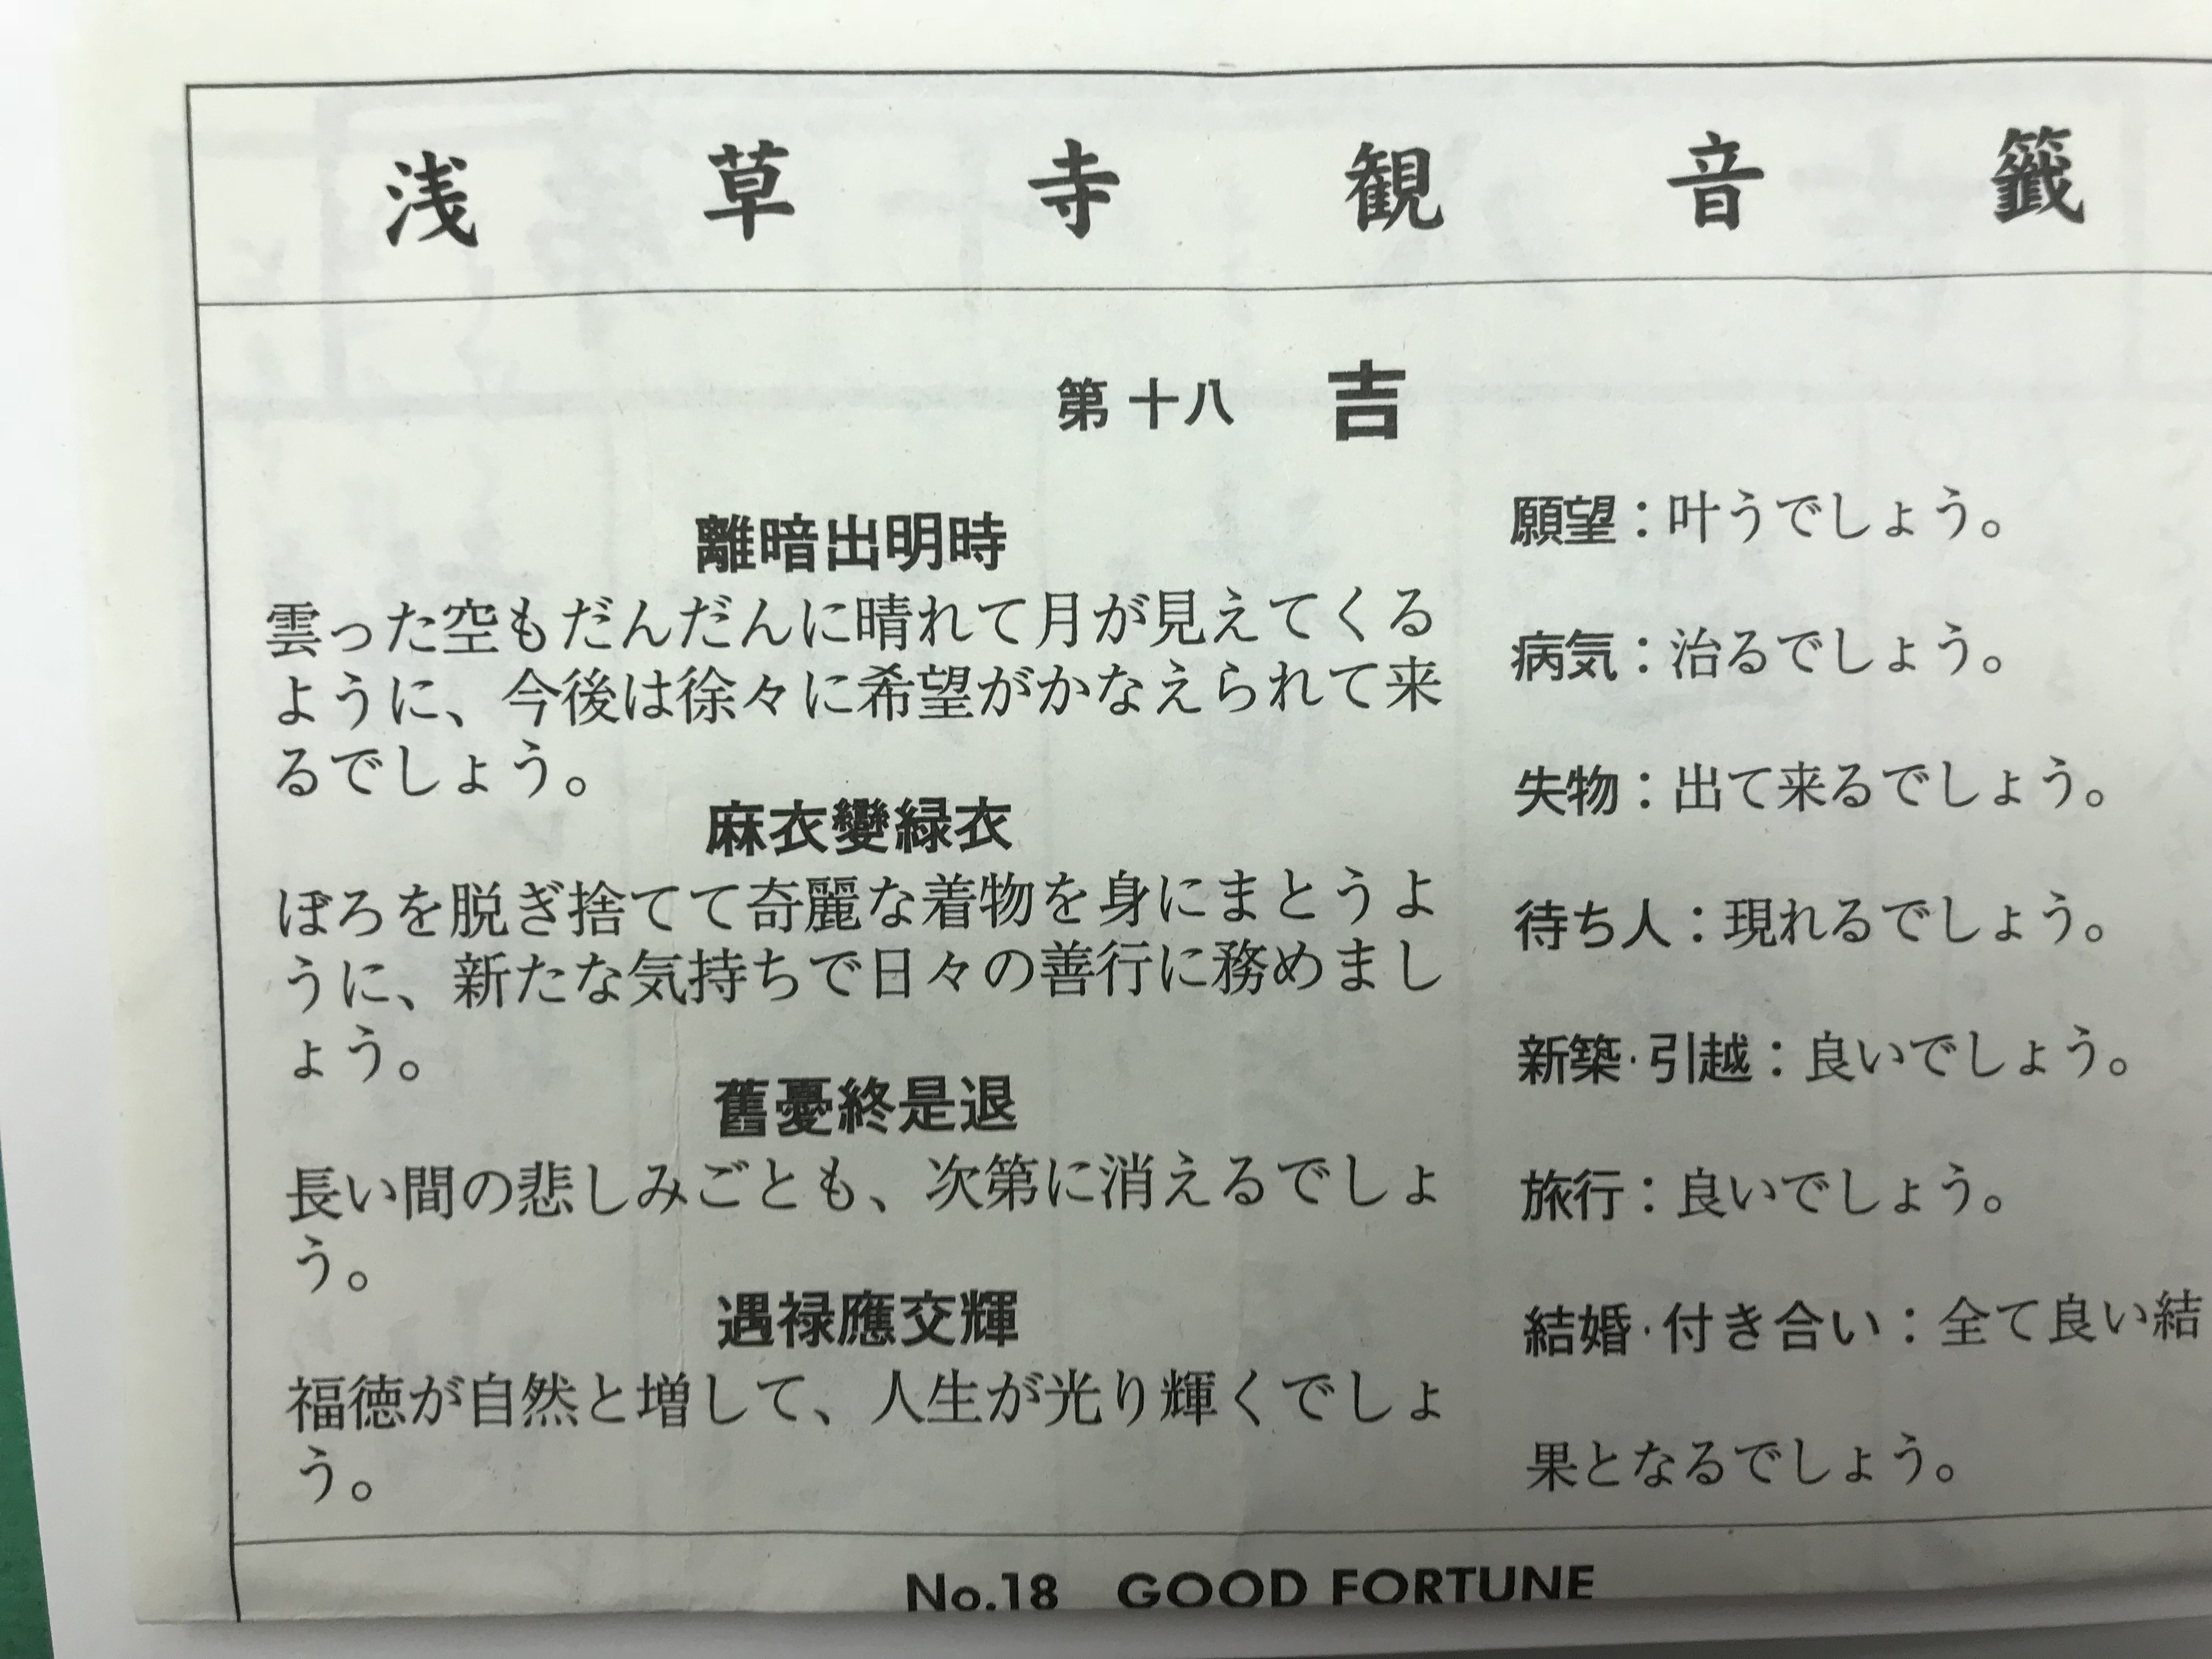 浅草寺観音籤
第十八 吉
離暗出明時
雲った空もだんだんに晴れて月が見えてくる
ように、今後は徐々に希望がかなえられて来
るでしょう。
麻衣變緑衣
ぼろを脱ぎ捨てて奇麗な着物を身にまとうよ
うに、新たな気持ちで日々の善行に務めまし
ょう。
舊憂終是退
長い間の悲しみごとも、次第に消えるでしょ
う。
遇禄應交輝
福徳が自然と増して、人生が光り輝くでしょ
う。
願望：叶うでしょう。
病気：治るでしょう。
失物：出て来るでしょう。
待ち人：現れるでしょう。
新築·引越：良いでしょう。
旅行：良いでしょう。
結婚·付き合い：全て良い結
果となるでしょう。
No.18 GOOD FORTUNE